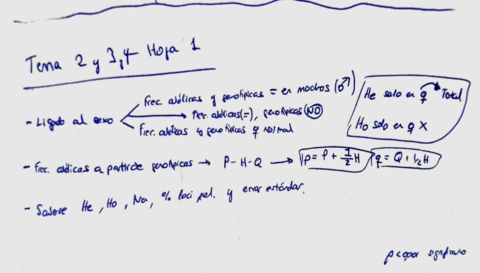 Tema 2 y 3,4 Hoja 1
Frec. alélicas y genotípicas = en machos (♂)
- Ligado al sexo → Frec. alélicas (=), genotípicas (NO)
Frec. alélicas y genotípicas ♀ normal
He solo en ♀ Total
Ho solo en ♀ X
- Frec. alélicas a partir de genotípicas → P-H-Q → p = P + 1/2 H q = Q + 1/2 H
- Sacarse He, Ho, Na, % loci pol. y error estándar.
significativo